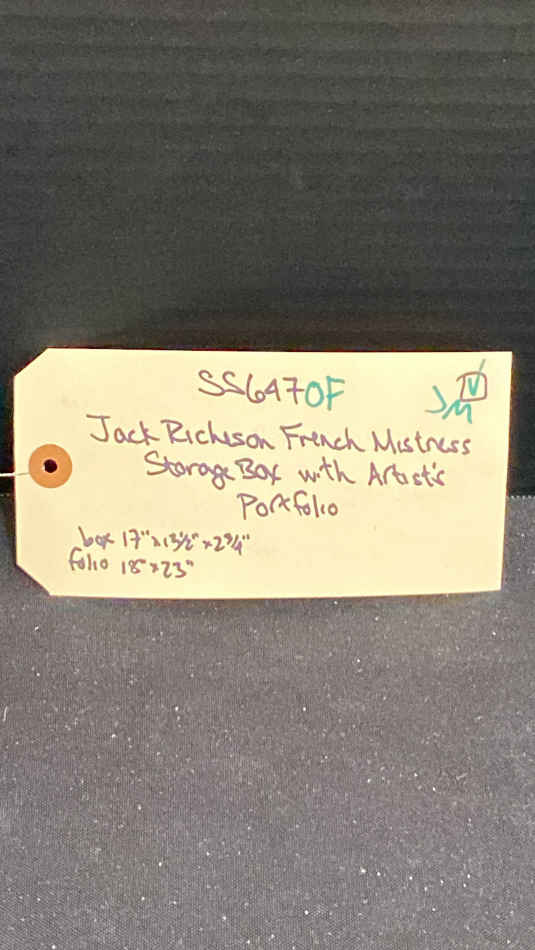 SS647OF
JM
Jack Richeson French Mistress
Storage Box with Artist's
Portfolio
box 17" x 13½" x 2¾"
folio 18" x 23"